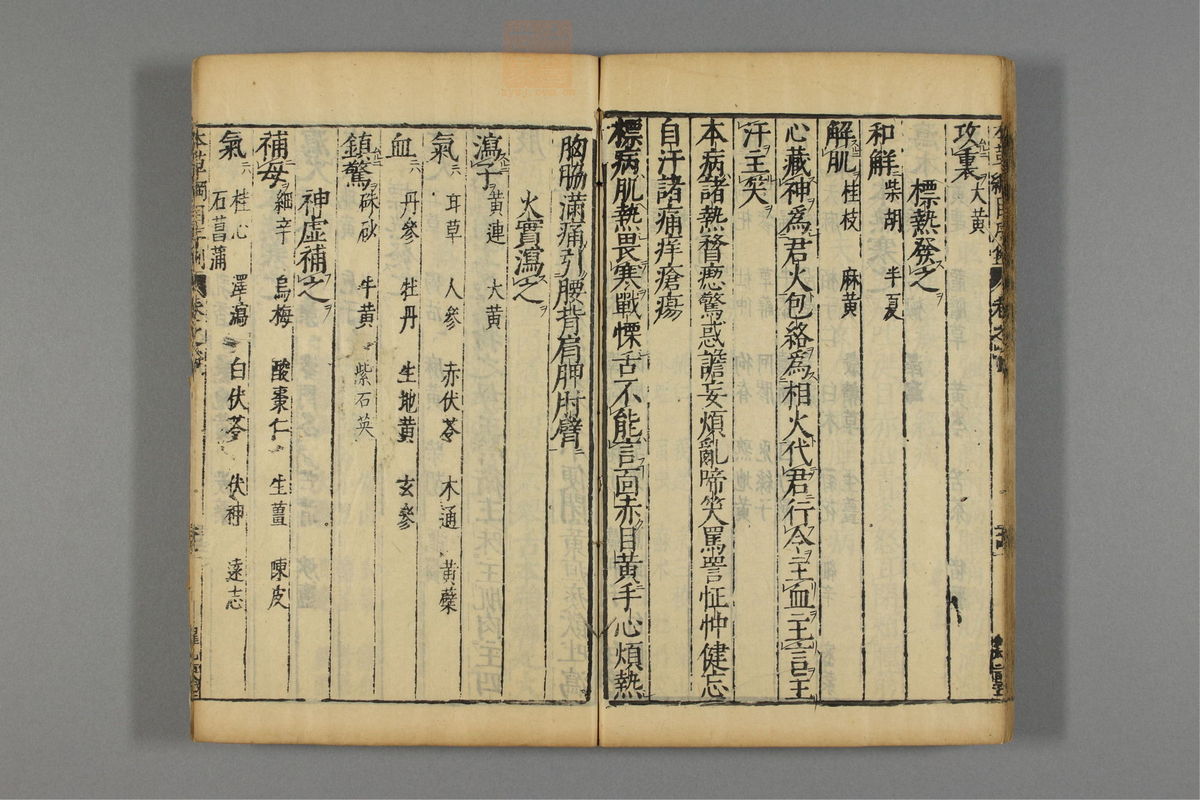 攻裏 大黃
標熱發之
和解 柴胡 半夏
解肌 桂枝 麻黄
心藏神爲君火包絡爲相火代君行令主血主言主
汗主笑
本病諸熱瞀瘛驚惑譫妄煩亂啼笑罵詈怔忡健忘
自汗諸痛痒瘡瘍
標病肌熱畏寒戰慄舌不能言面赤目黄手心煩熱
胸脇滿痛引腰背肩胛肘臂
火實瀉之
瀉子 黄連 大黄
氣 甘草 人參 赤伏苓 木通 黄蘗
血 丹參 牡丹 生地黄 玄參
鎮驚 硃砂 牛黄 紫石英
神虚補之
補母 細辛 烏梅 酸棗仁 生薑 陳皮
氣 桂心 澤瀉 白伏苓 伏神 遠志
石菖蒲